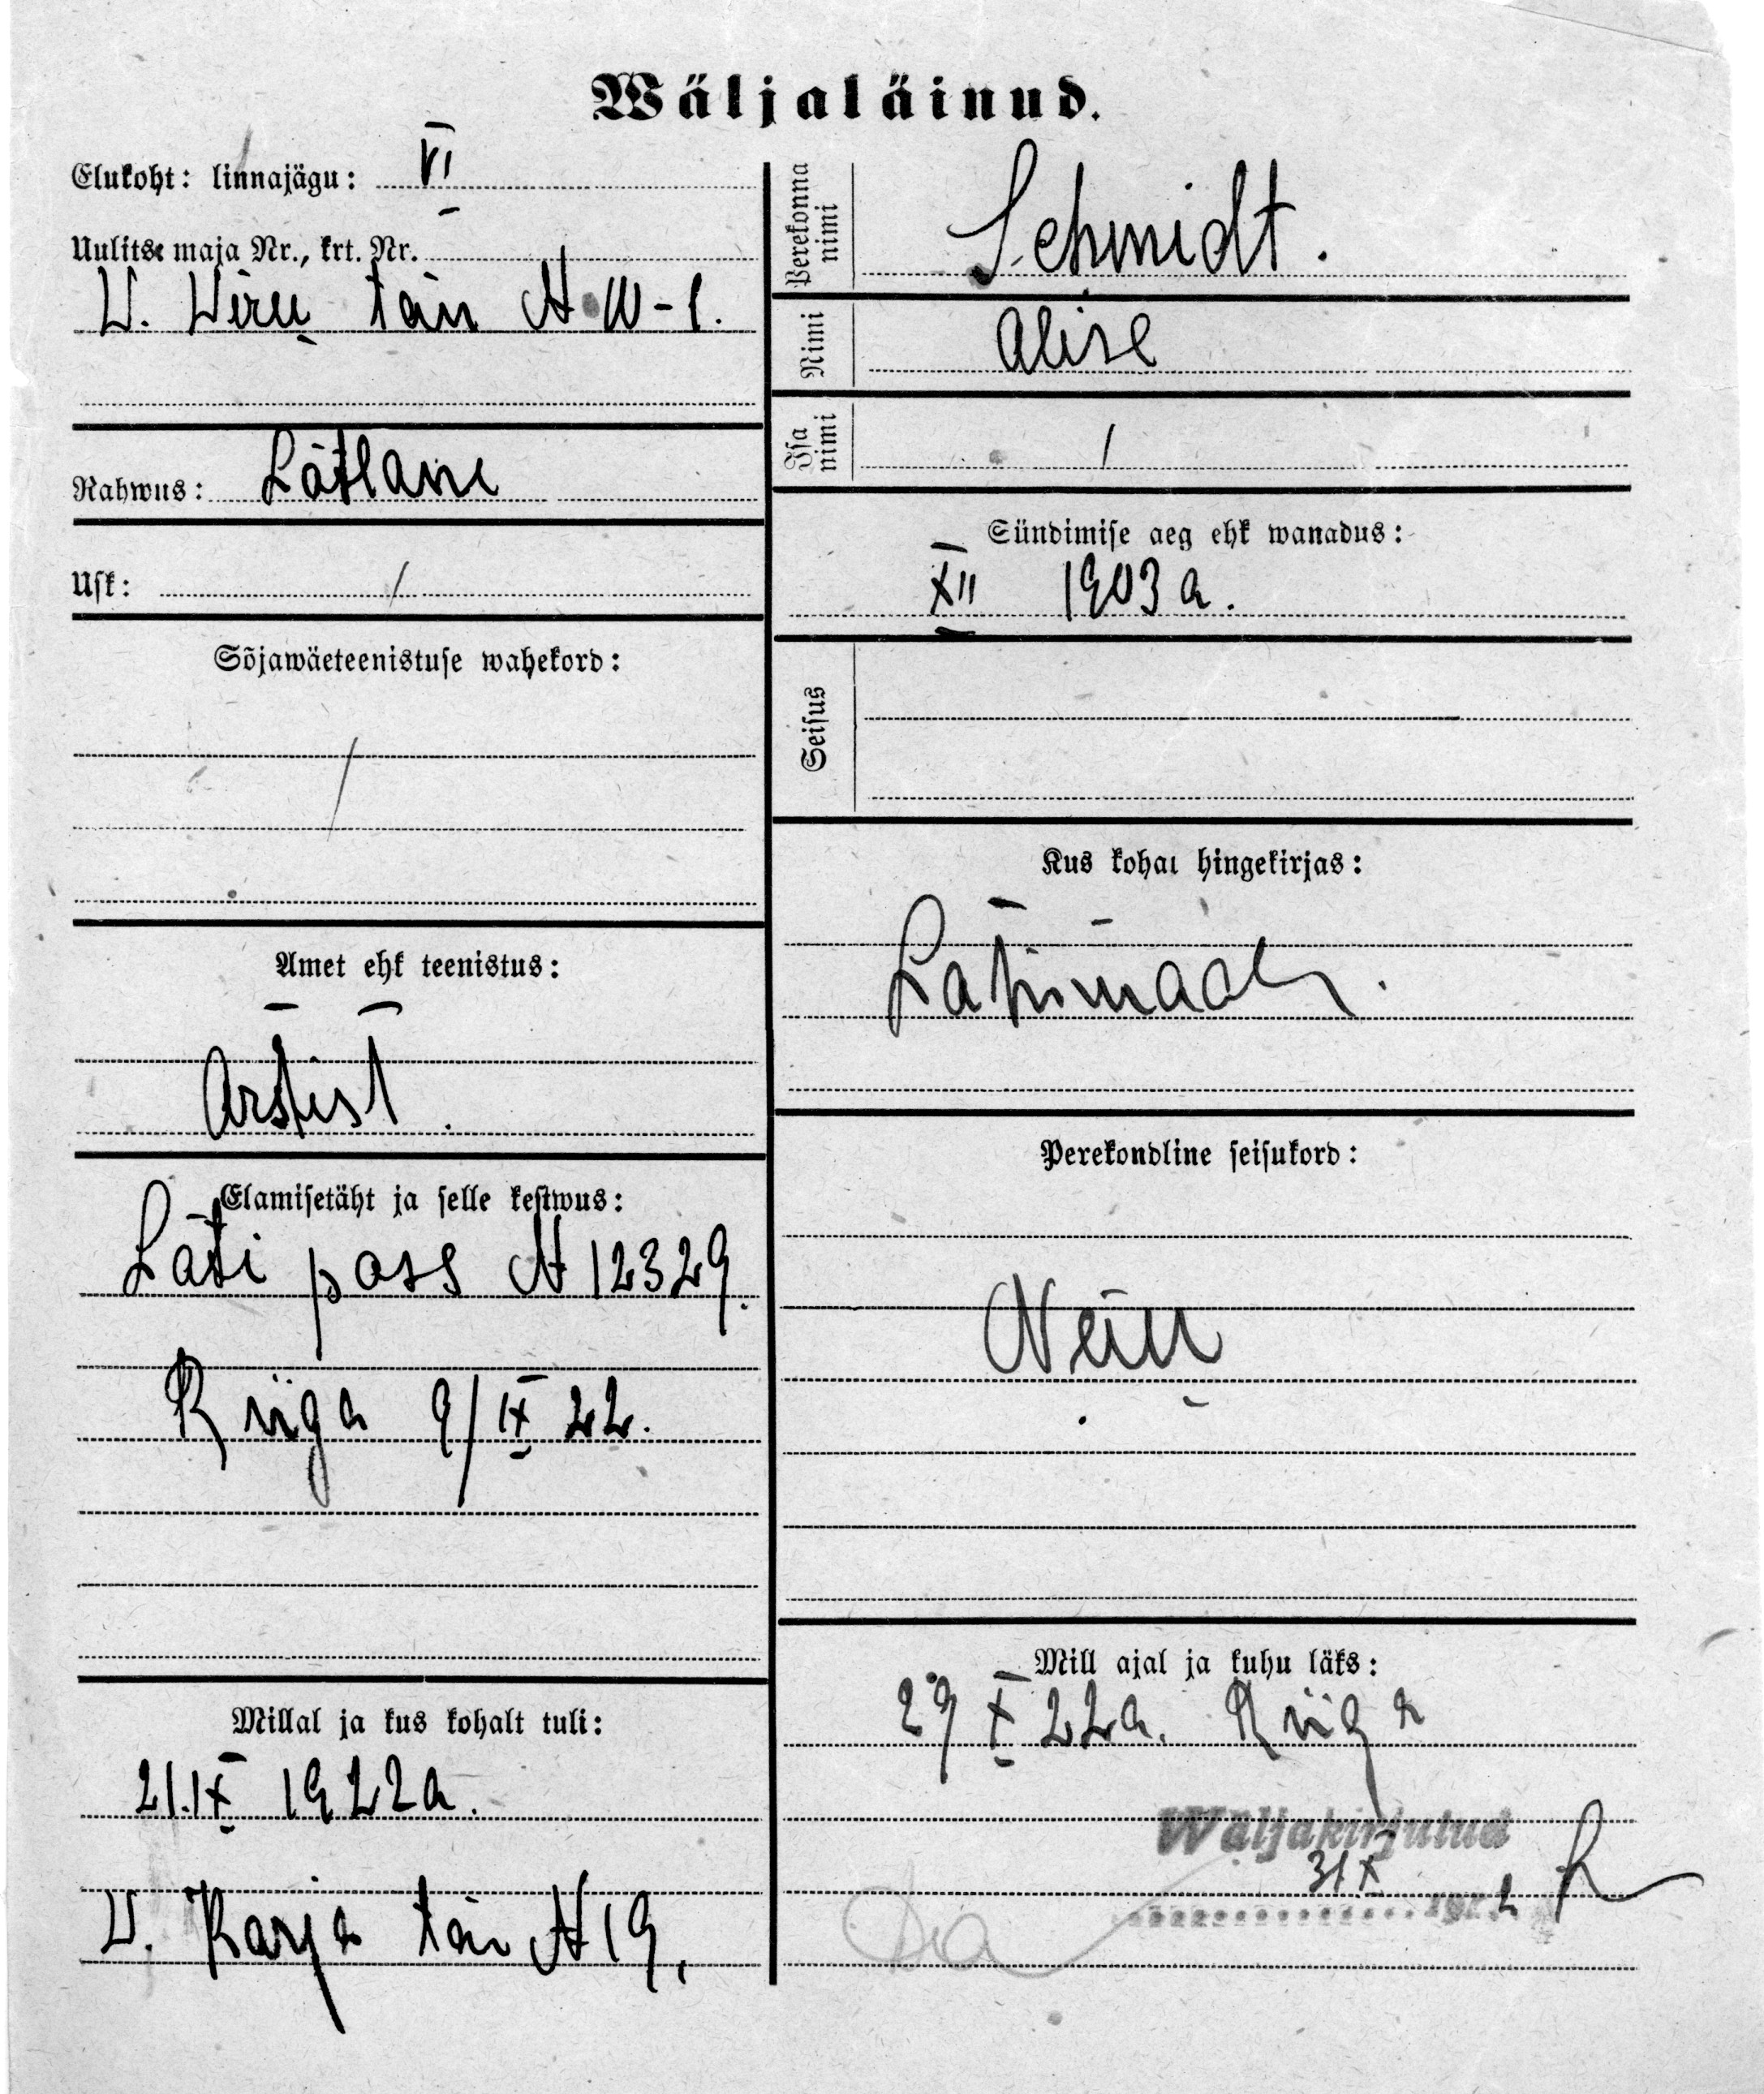 Wäljaläinud.
Elukoht: linnajägu: VI
Uulitse maja Nr., krt. Nr.
W. Wiru tän N 10-1.
Rahwus: Lätlane
Usk: /
Sõjawäeteenistuse wahekord:
/
Amet ehk teenistus:
Artist.
Elamisetäht ja selle kestwus:
Läti pass N 12329.
Riiga 9/IX 22.
Millal ja kus kohalt tuli:
21.IX 1922 a.
W. Karja tän N 19.
Perekonna nimi
Schmidt.
Nimi
Alise
Isa nimi
/
Sündimise aeg ehk wanadus:
XII 1903 a.
Seisus
Kus kohal hingekirjas:
Lätimaal.
Perekondline seisukord:
Neiu
Mill ajal ja kuhu läks:
29 X 22 a. Riiga
Wäljakirjutud
31 X 192 2